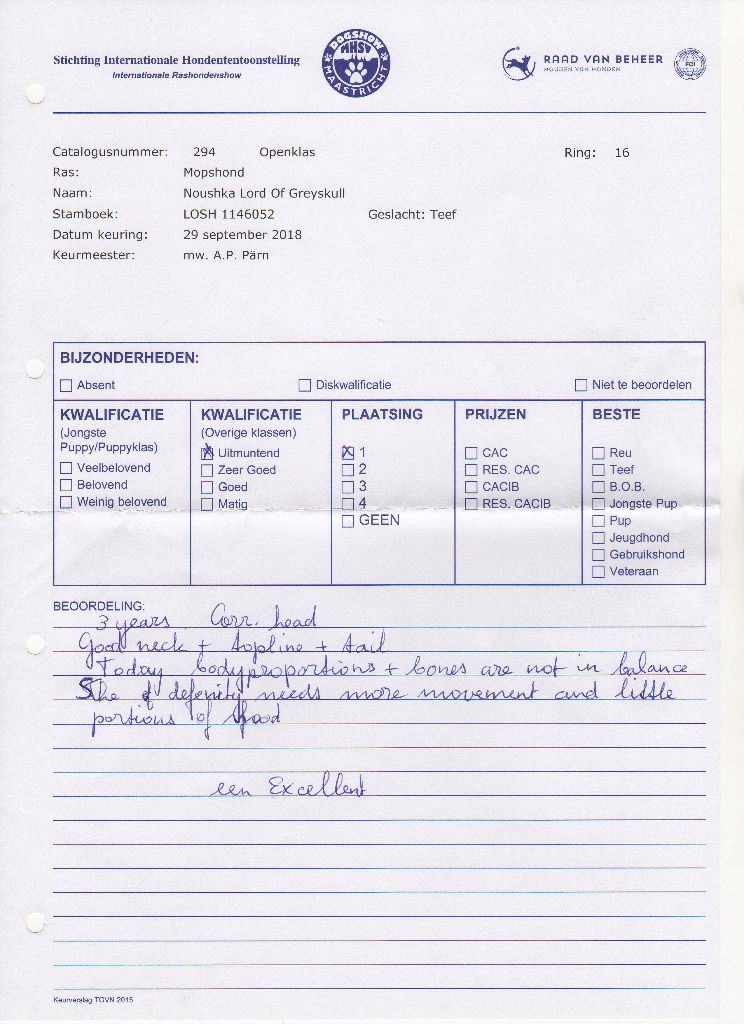 Stichting Internationale Hondententoonstelling
Internationale Rashondenshow
DOGSHOW
MHSV
MAASTRICHT
RAAD VAN BEHEER
HOUDEN VAN HONDEN
FCI
Catalogusnummer: 294 Openklas Ring: 16
Ras: Mopshond
Naam: Noushka Lord Of Greyskull
Stamboek: LOSH 1146052 Geslacht: Teef
Datum keuring: 29 september 2018
Keurmeester: mw. A.P. Pärn
BIJZONDERHEDEN:
Absent Diskwalificatie Niet te beoordelen
KWALIFICATIE
(Jongste
Puppy/Puppyklas)
Veelbelovend
Belovend
Weinig belovend
KWALIFICATIE
(Overige klassen)
X Uitmuntend
Zeer Goed
Goed
Matig
PLAATSING
X 1
2
3
4
GEEN
PRIJZEN
CAC
RES. CAC
CACIB
RES. CACIB
BESTE
Reu
Teef
B.O.B.
Jongste Pup
Pup
Jeugdhond
Gebruikshond
Veteraan
BEOORDELING:
3 years. Corr. head
Good neck + topline + tail
Today bodyproportions + bones are not in balance
She defenitly needs more movement and little
portions of food
een Excellent
Keurverslag TGVN 2015